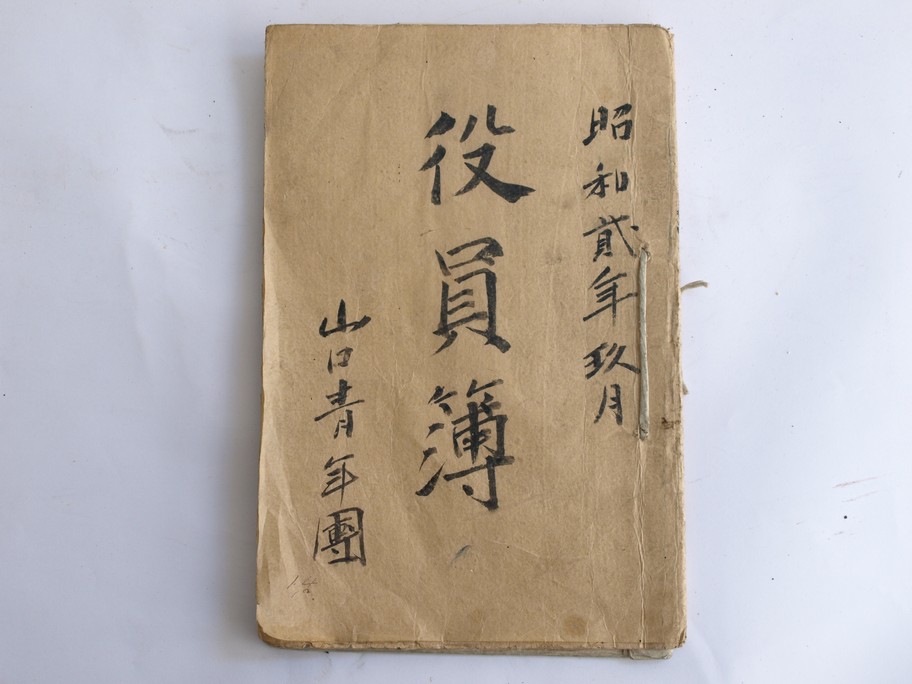 昭和貳年玖月
役員簿
山口青年團